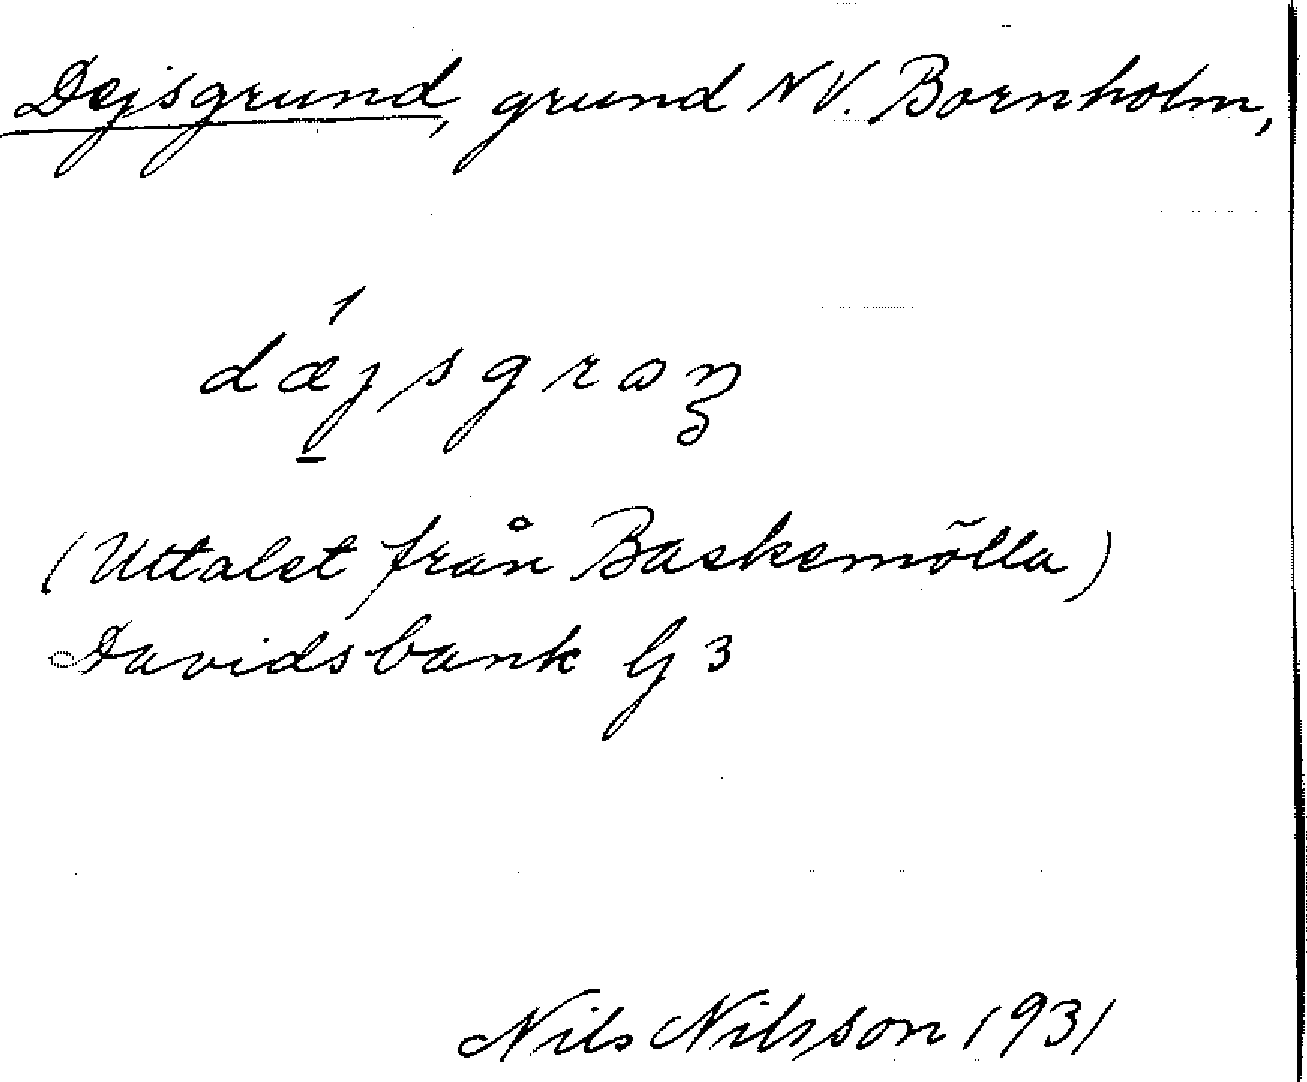 Dejsgrund, grund NV. Bornholm,
dǽjsgrɷnː
(Uttalet från Baskemölla)
Davidsbank G 3
Nils Nilsson 1931